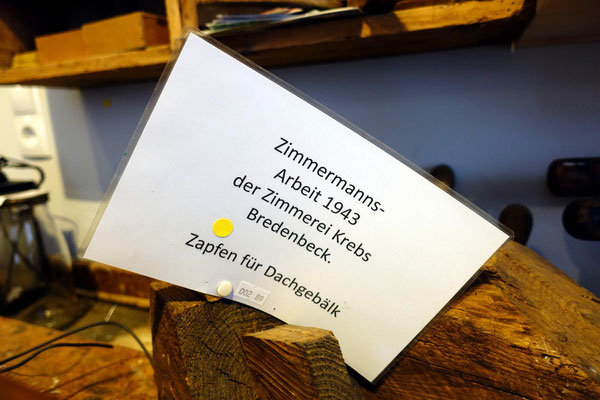 Zimmermanns-
Arbeit 1943
der Zimmerei Krebs
Bredenbeck.
Zapfen für Dachgebälk
002 89